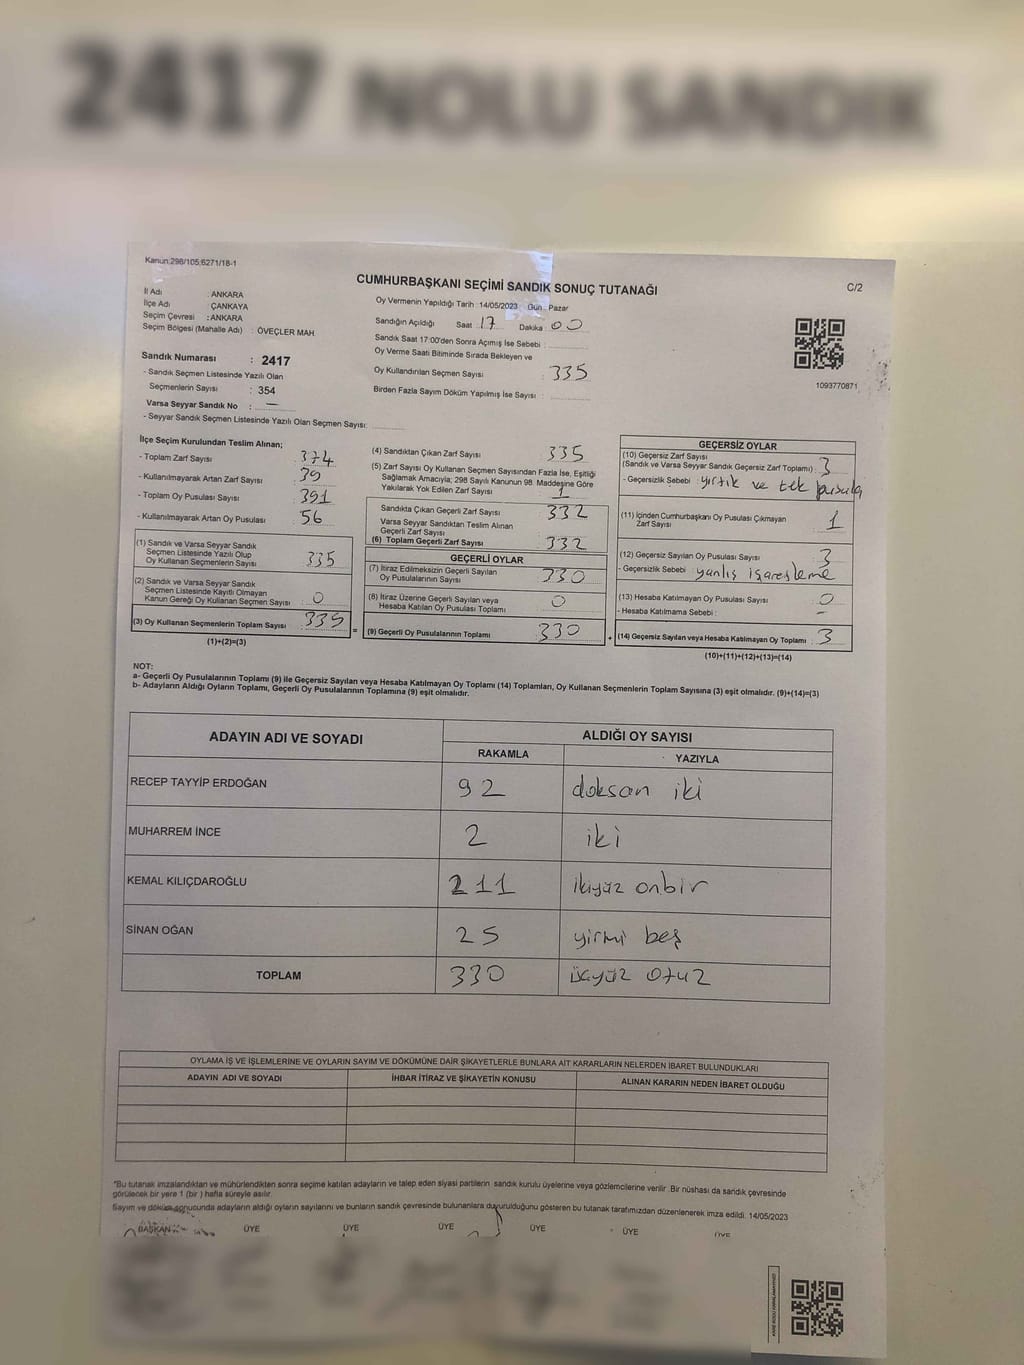 2417 NOLU SANDIK
Kanun:298/105;6271/18-1
CUMHURBAŞKANI SEÇİMİ SANDIK SONUÇ TUTANAĞI
C/2
İl Adı : ANKARA
İlçe Adı : ÇANKAYA
Seçim Çevresi : ANKARA
Seçim Bölgesi (Mahalle Adı) : ÖVEÇLER MAH.
Oy Vermenin Yapıldığı Tarih : 14/05/2023 Gün : Pazar
Sandığın Açıldığı Saat : 17 Dakika : 00
Sandık Saat 17:00'den Sonra Açımış İse Sebebi :
Oy Verme Saati Bitiminde Sırada Bekleyen ve
Oy Kullandırılan Seçmen Sayısı : 335
Birden Fazla Sayım Döküm Yapılmış İse Sayısı :
1093770871
Sandık Numarası : 2417
- Sandık Seçmen Listesinde Yazılı Olan
Seçmenlerin Sayısı : 354
Varsa Seyyar Sandık No : —
- Seyyar Sandık Seçmen Listesinde Yazılı Olan Seçmen Sayısı:
İlçe Seçim Kurulundan Teslim Alınan;
- Toplam Zarf Sayısı : 374
- Kullanılmayarak Artan Zarf Sayısı : 39
- Toplam Oy Pusulası Sayısı : 391
- Kullanılmayarak Artan Oy Pusulası : 56
(1) Sandık ve Varsa Seyyar Sandık
Seçmen Listesinde Yazılı Olup
Oy Kullanan Seçmenlerin Sayısı : 335
(2) Sandık ve Varsa Seyyar Sandık
Seçmen Listesinde Kayıtlı Olmayan
Kanun Gereği Oy Kullanan Seçmen Sayısı : 0
(3) Oy Kullanan Seçmenlerin Toplam Sayısı : 335
(1)+(2)=(3)
(4) Sandıktan Çıkan Zarf Sayısı : 335
(5) Zarf Sayısı Oy Kullanan Seçmen Sayısından Fazla İse, Eşitliği
Sağlamak Amacıyla; 298 Sayılı Kanunun 98. Maddesine Göre
Yakılarak Yok Edilen Zarf Sayısı : 1
Sandıkta Çıkan Geçerli Zarf Sayısı : 332
Varsa Seyyar Sandıktan Teslim Alınan
Geçerli Zarf Sayısı :
(6) Toplam Geçerli Zarf Sayısı : 332
GEÇERLİ OYLAR
(7) İtiraz Edilmeksizin Geçerli Sayılan
Oy Pusulalarının Sayısı : 330
(8) İtiraz Üzerine Geçerli Sayılan veya
Hesaba Katılan Oy Pusulası Toplamı : 0
= (9) Geçerli Oy Pusulalarının Toplamı : 330
GEÇERSİZ OYLAR
(10) Geçersiz Zarf Sayısı
(Sandık ve Varsa Seyyar Sandık Geçersiz Zarf Toplamı) : 3
- Geçersizlik Sebebi : yırtık ve tek pusula
(11) İçinden Cumhurbaşkanı Oy Pusulası Çıkmayan
Zarf Sayısı : 1
(12) Geçersiz Sayılan Oy Pusulası Sayısı : 3
- Geçersizlik Sebebi : yanlış işaretleme
(13) Hesaba Katılmayan Oy Pusulası Sayısı : 0
- Hesaba Katılmama Sebebi : -
+ (14) Geçersiz Sayılan veya Hesaba Katılmayan Oy Toplamı : 3
(10)+(11)+(12)+(13)=(14)
NOT:
a- Geçerli Oy Pusulalarının Toplamı (9) ile Geçersiz Sayılan veya Hesaba Katılmayan Oy Toplamı (14) Toplamları, Oy Kullanan Seçmenlerin Toplam Sayısına (3) eşit olmalıdır. (9)+(14)=(3)
b- Adayların Aldığı Oyların Toplamı, Geçerli Oy Pusulalarının Toplamına (9) eşit olmalıdır.
ADAYIN ADI VE SOYADI ALDIĞI OY SAYISI
RAKAMLA YAZIYLA
RECEP TAYYİP ERDOĞAN 92 doksan iki
MUHARREM İNCE 2 iki
KEMAL KILIÇDAROĞLU 211 ikiyüz onbir
SİNAN OĞAN 25 yirmi beş
TOPLAM 330 üçyüz otuz
OYLAMA İŞ VE İŞLEMLERİNE VE OYLARIN SAYIM VE DÖKÜMÜNE DAİR ŞİKAYETLERLE BUNLARA AİT KARARLARIN NELERDEN İBARET BULUNDUKLARI
ADAYIN ADI VE SOYADI İHBAR İTİRAZ VE ŞİKAYETİN KONUSU ALINAN KARARIN NEDEN İBARET OLDUĞU
*Bu tutanak imzalandıktan ve mühürlendikten sonra seçime katılan adayların ve talep eden siyasi partilerin sandık kurulu üyelerine veya gözlemcilerine verilir .Bir nüshası da sandık çevresinde
görülecek bir yere 1 (bir ) hafta süreyle asılır.
Sayım ve döküm sonucunda adayların aldığı oyların sayılarını ve bunların sandık çevresinde bulunanlara duyurulduğunu gösteren bu tutanak tarafımızdan düzenlenerek imza edildi. 14/05/2023
BAŞKAN ÜYE ÜYE ÜYE ÜYE ÜYE ÜYE